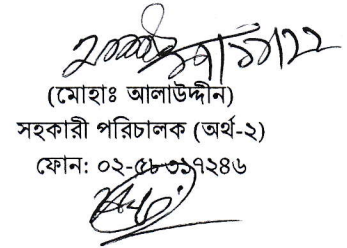 (মোহাঃ আলাউদ্দীন)
সহকারী পরিচালক (অর্থ-২)
ফোন: ০২-৫৮৩১৭২৪৬